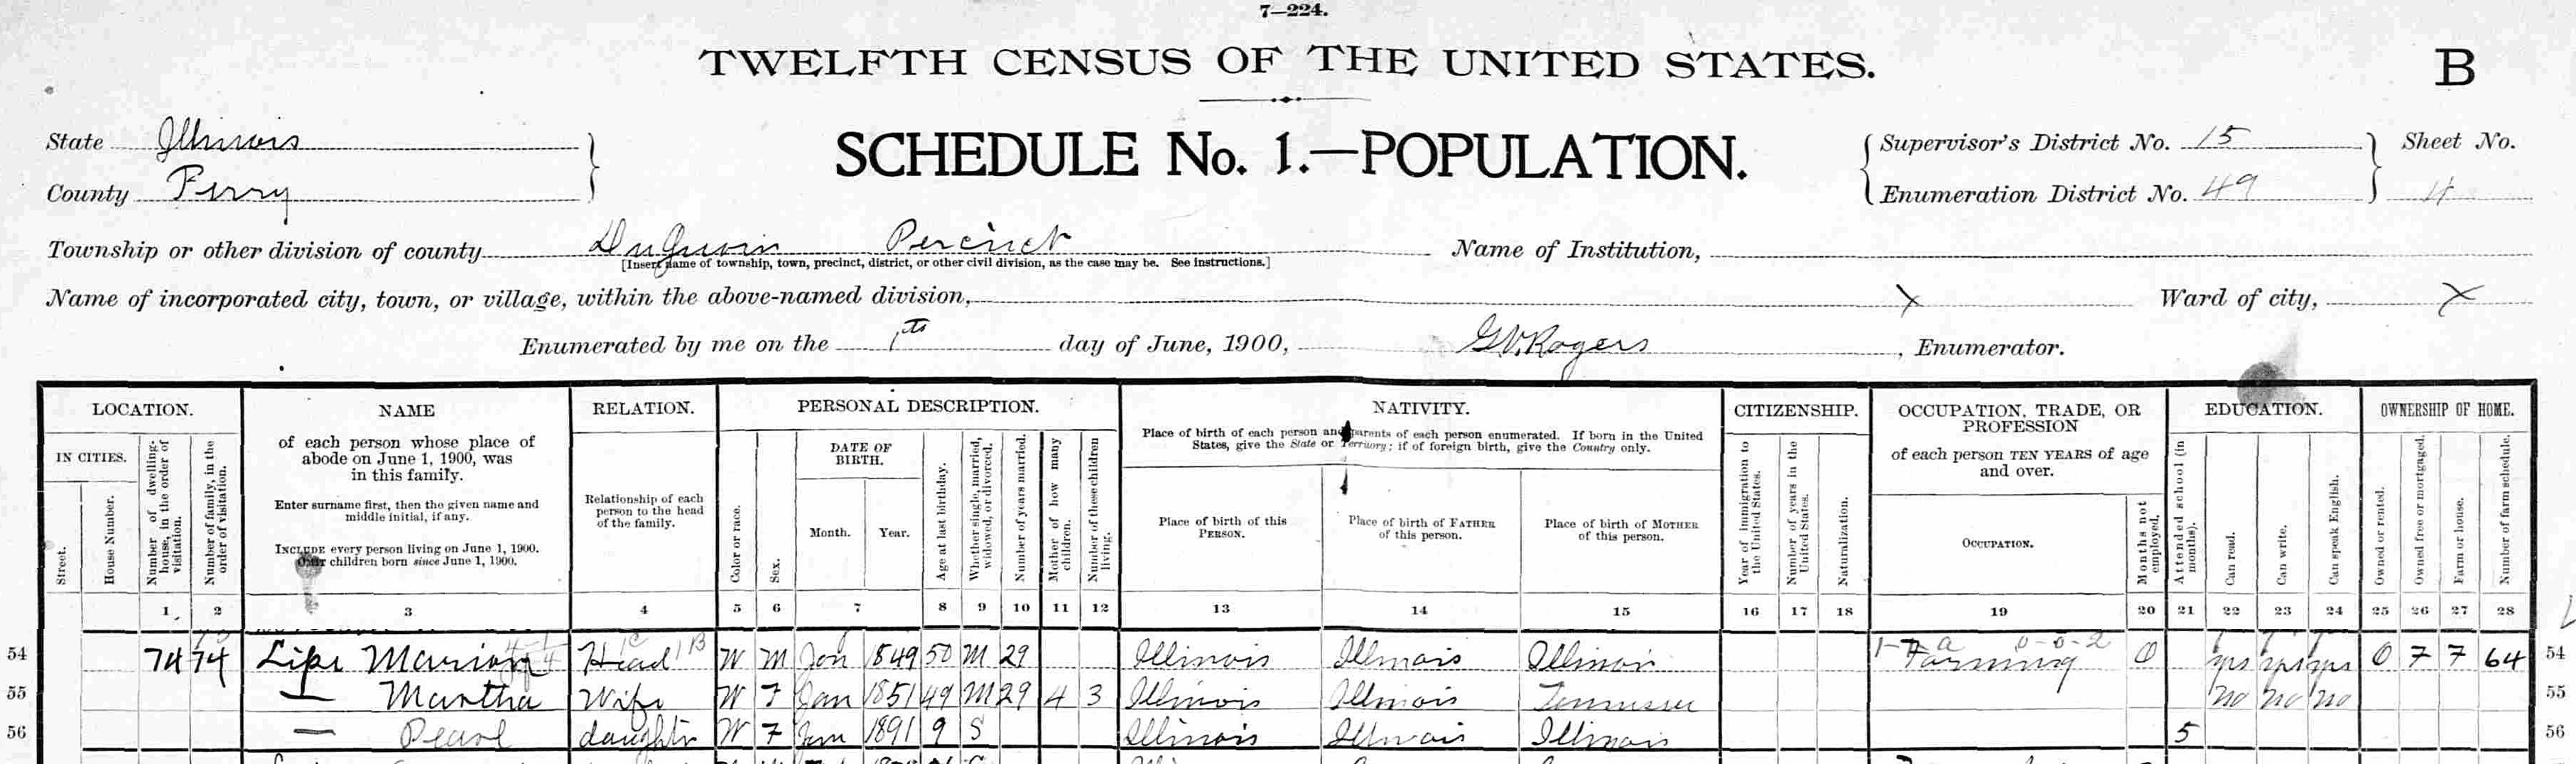 7—224.
TWELFTH CENSUS OF THE UNITED STATES.
B
State Illinois
SCHEDULE No. 1.—POPULATION.
Supervisor's District No. 15
Sheet No.
County Perry
Enumeration District No. 49
4
Township or other division of county DuQuoin Percinct
Name of Institution,
[Insert name of township, town, precinct, district, or other civil division, as the case may be. See instructions.]
Name of incorporated city, town, or village, within the above-named division, X
Ward of city, X
Enumerated by me on the 1th day of June, 1900, G.V. Rogers, Enumerator.
LOCATION.
IN CITIES.
Street.
House Number.
Number of dwelling-house, in the order of visitation.
Number of family, in the order of visitation.
NAME
of each person whose place of
abode on June 1, 1900, was
in this family.
Enter surname first, then the given name and
middle initial, if any.
INCLUDE every person living on June 1, 1900.
OMIT children born since June 1, 1900.
RELATION.
Relationship of each
person to the head
of the family.
PERSONAL DESCRIPTION.
Color or race.
Sex.
DATE OF
BIRTH.
Month.
Year.
Age at last birthday.
Whether single, married, widowed, or divorced.
Number of years married.
Mother of how many children.
Number of these children living.
NATIVITY.
Place of birth of each person and parents of each person enumerated. If born in the United
States, give the State or Territory; if of foreign birth, give the Country only.
Place of birth of this
PERSON.
Place of birth of FATHER
of this person.
Place of birth of MOTHER
of this person.
CITIZENSHIP.
Year of immigration to the United States.
Number of years in the United States.
Naturalization.
OCCUPATION, TRADE, OR
PROFESSION
of each person TEN YEARS of age
and over.
OCCUPATION.
Months not employed.
EDUCATION.
Attended school (in months).
Can read.
Can write.
Can speak English.
OWNERSHIP OF HOME.
Owned or rented.
Owned free or mortgaged.
Farm or house.
Number of farm schedule.
1 2 3 4 5 6 7 8 9 10 11 12 13 14 15 16 17 18 19 20 21 22 23 24 25 26 27 28
54 74 74 Lipe Marion Head W M Jan 1849 50 M 29 Illinois Illinois Illinois Farming 0 yes yes yes O F F 64 54
55 — Martha Wife W F Jan 1851 49 M 29 4 3 Illinois Illinois Tennessee no no no 55
56 — Pearl daughter W F Jan 1891 9 S Illinois Illinois Illinois 5 56